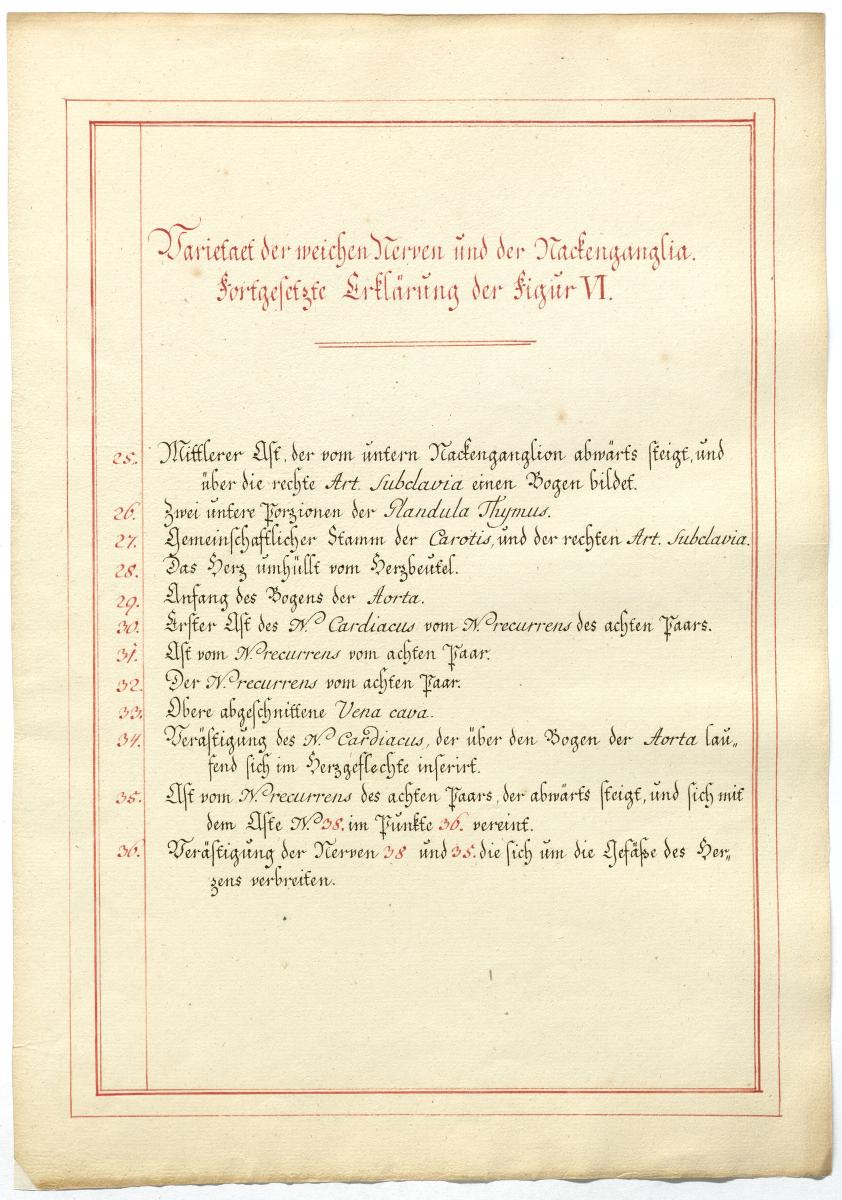 Varietaet der weichen Nerven und der Nackenganglia.
Fortgesetzte Erklärung der Figur VI.
25. Mittlerer Ast, der vom untern Nackenganglion abwärts steigt, und
über die rechte Art. Subclavia einen Bogen bildet.
26. Zwei untere Porzionen der Glandula Thymus.
27. Gemeinschaftlicher Stamm der Carotis, und der rechten Art. Subclavia.
28. Das Herz umhüllt vom Herzbeutel.
29. Anfang des Bogens der Aorta.
30. Erster Ast des N. Cardiacus vom N. recurrens des achten Paars.
31. Ast vom N. recurrens vom achten Paar.
32. Der N. recurrens vom achten Paar.
33. Obere abgeschnittene Vena cava.
34. Verästigung des N. Cardiacus, der über den Bogen der Aorta lau„
fend sich im Herzgeflechte inserirt.
35. Ast vom N. recurrens des achten Paars, der abwärts steigt, und sich mit
dem Aste N. 38. im Punkte 36. vereint.
36. Verästigung der Nerven 38 und 35. die sich um die Gefäße des Her„
zens verbreiten.